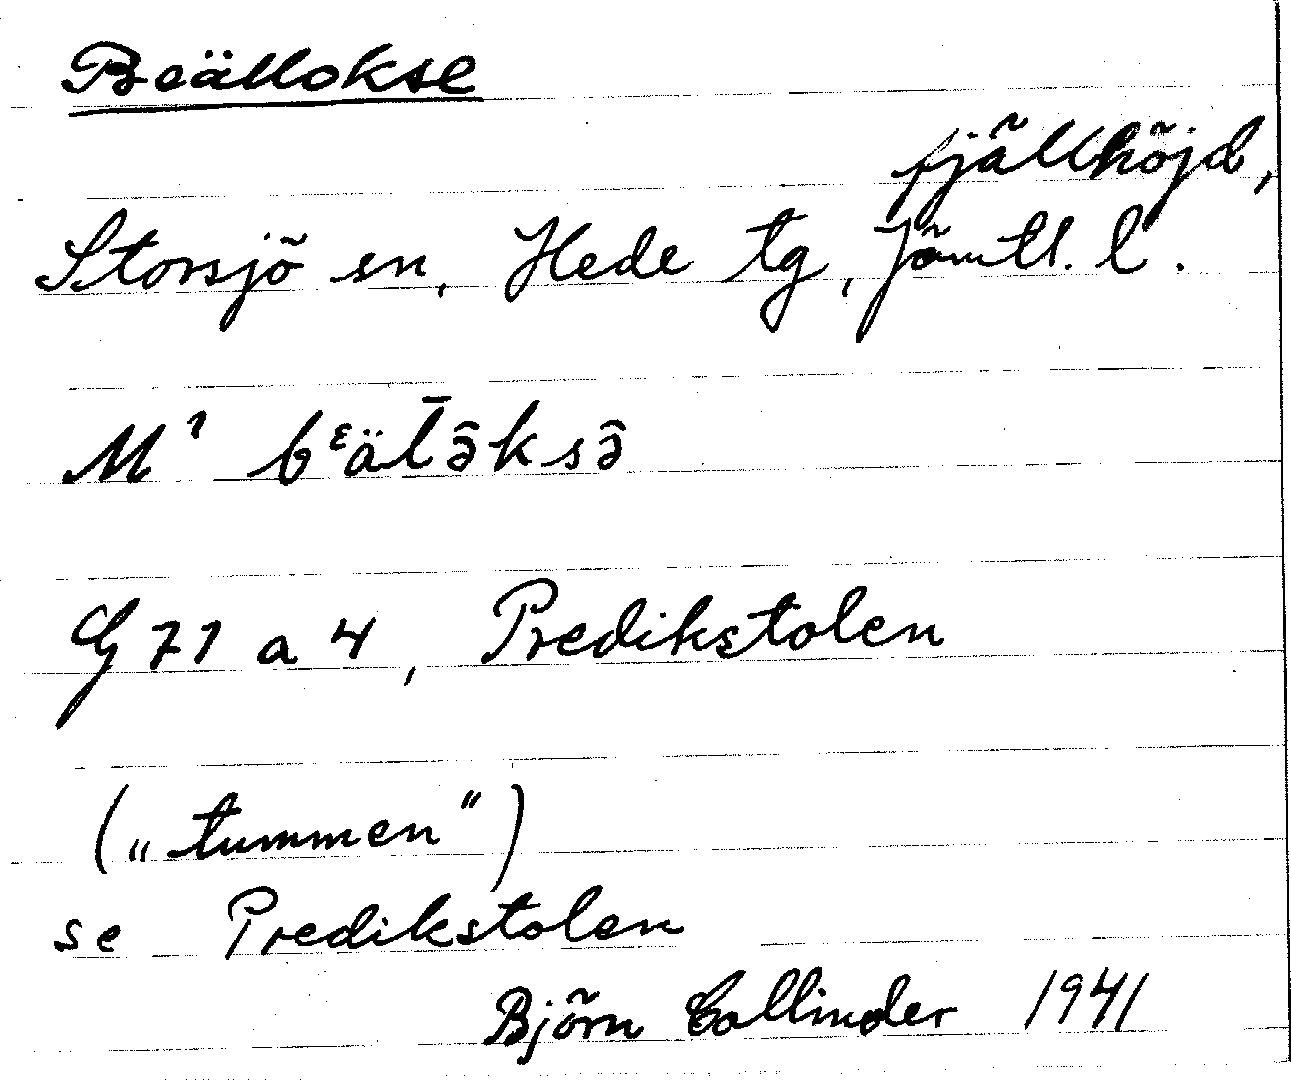 Beällokse
fjällhöjd,
Storsjö sn, Hede tg, Jämtl. l.
M² bᵋäl̄ə̂ksə̂
G 71 a 4, Predikstolen
(„tummen")
se Predikstolen
Björn Collinder 1941